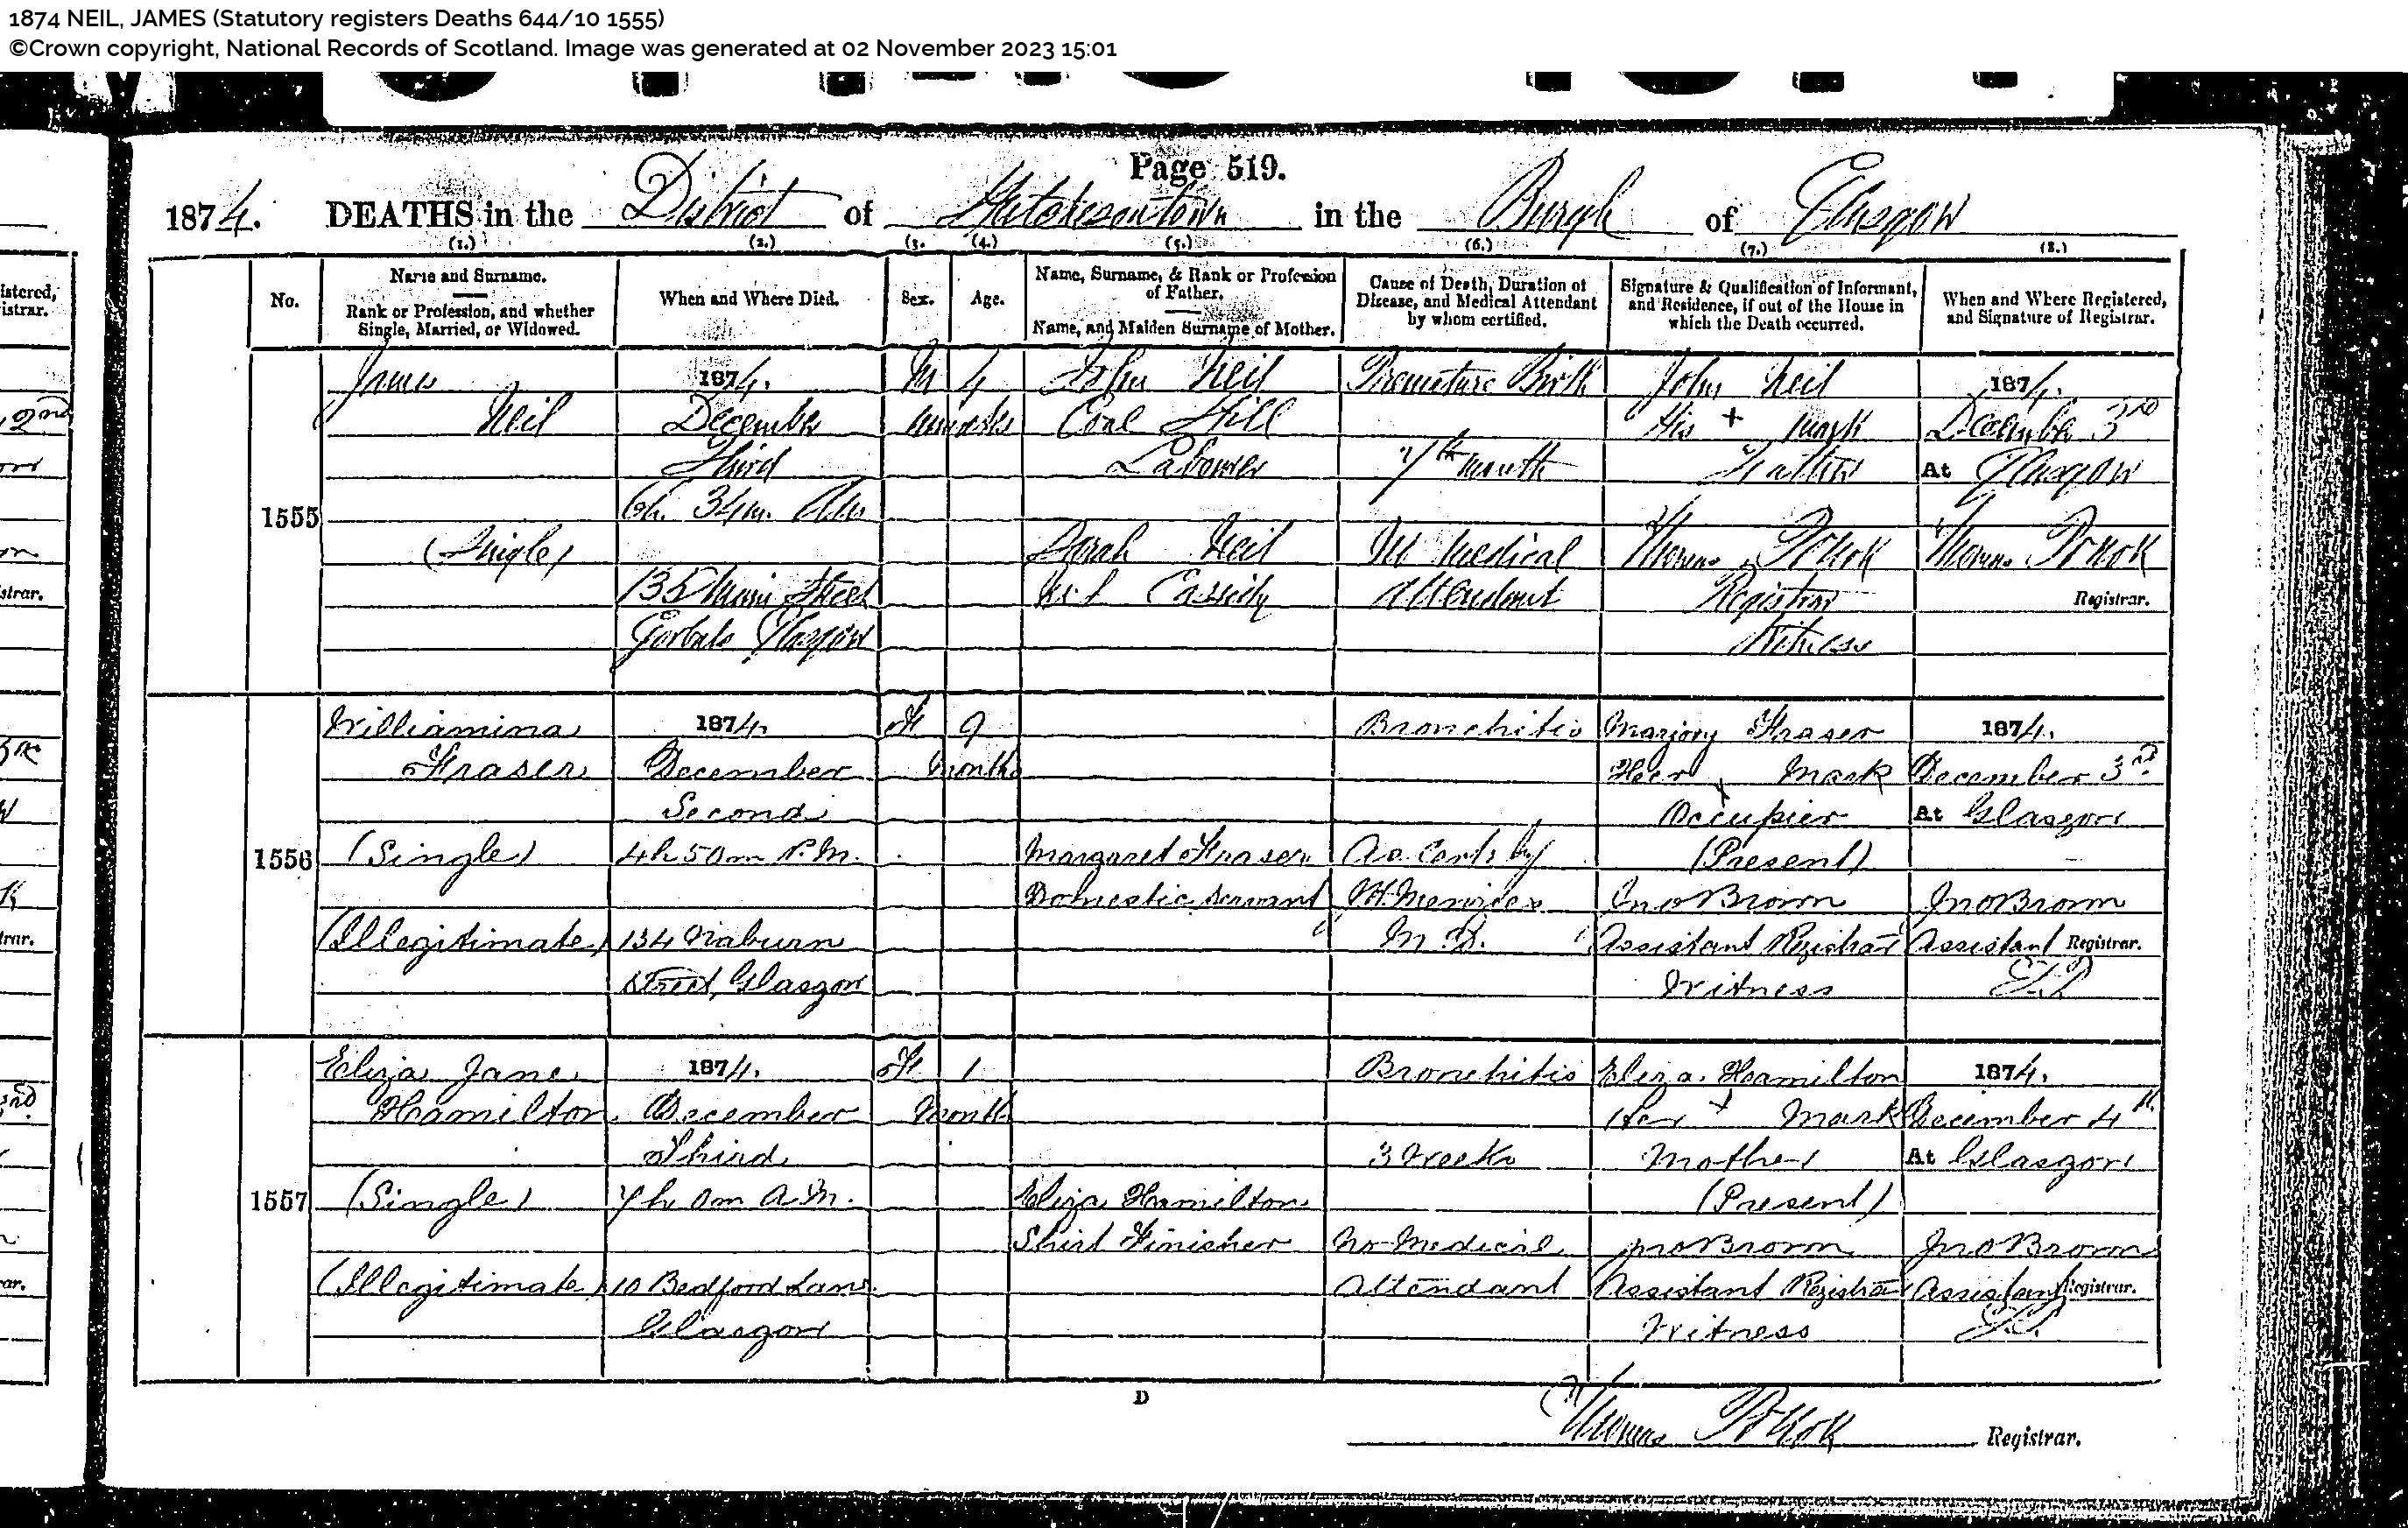 1874 NEIL, JAMES (Statutory registers Deaths 644/10 1555)
©Crown copyright, National Records of Scotland. Image was generated at 02 November 2023 15:01
Page 519.
1874. DEATHS in the District of Hutchesontown in the Burgh of Glasgow
(1.) (2.) (3. (4.) (5.) (6.) (7.) (8.)
No.
Name and Surname.
Rank or Profession, and whether
Single, Married, or Widowed.
When and Where Died.
Sex.
Age.
Name, Surname, & Rank or Profession
of Father.
Name, and Maiden Surname of Mother.
Cause of Death, Duration of
Disease, and Medical Attendant
by whom certified.
Signature & Qualification of Informant,
and Residence, if out of the House in
which the Death occurred.
When and Where Registered,
and Signature of Registrar.
1555
James
Neil
(Single)
1874.
December
Third
6h. 34m. AM
135 Main Street
Gorbals Glasgow
M
4
John Neil
Coal Hill
Labourer
Sarah Neil
M.S Cassidy
Premature Birth
7th month
No Medical
Attendant
John Neil
His + mark
Father
Thomas Pollok
Registrar
Witness
1874.
December 3rd
At Glasgow
Thomas Pollok
Registrar.
1556
Williamina
Fraser
(Single)
(Illegitimate)
1874.
December
Second
4h 50m P.M.
134 Naburn
Street, Glasgow
F
9
Months
Margaret Fraser
Domestic Servant
Bronchitis
As Cert. by
M.D.
Marjory Fraser
Her x Mark
Occupier
(Present)
Jno Brown
Assistant Registrar
Witness
1874.
December 3rd
At Glasgow
Jno Brown
Assistant Registrar.
1557
Eliza Jane
Hamilton
(Single)
(Illegitimate)
1874.
December
Third
7h 0m A.M.
10 Bedford Lane
Glasgow
F
1
Month
Eliza Hamilton
Shirt Finisher
Bronchitis
3 Weeks
No Medical
Attendant
Eliza Hamilton
Her x Mark
Mother
(Present)
Jno Brown
Assistant Registrar
Witness
1874.
December 4th
At Glasgow
Jno Brown
Assistant Registrar.
D
Thomas Pollok Registrar.